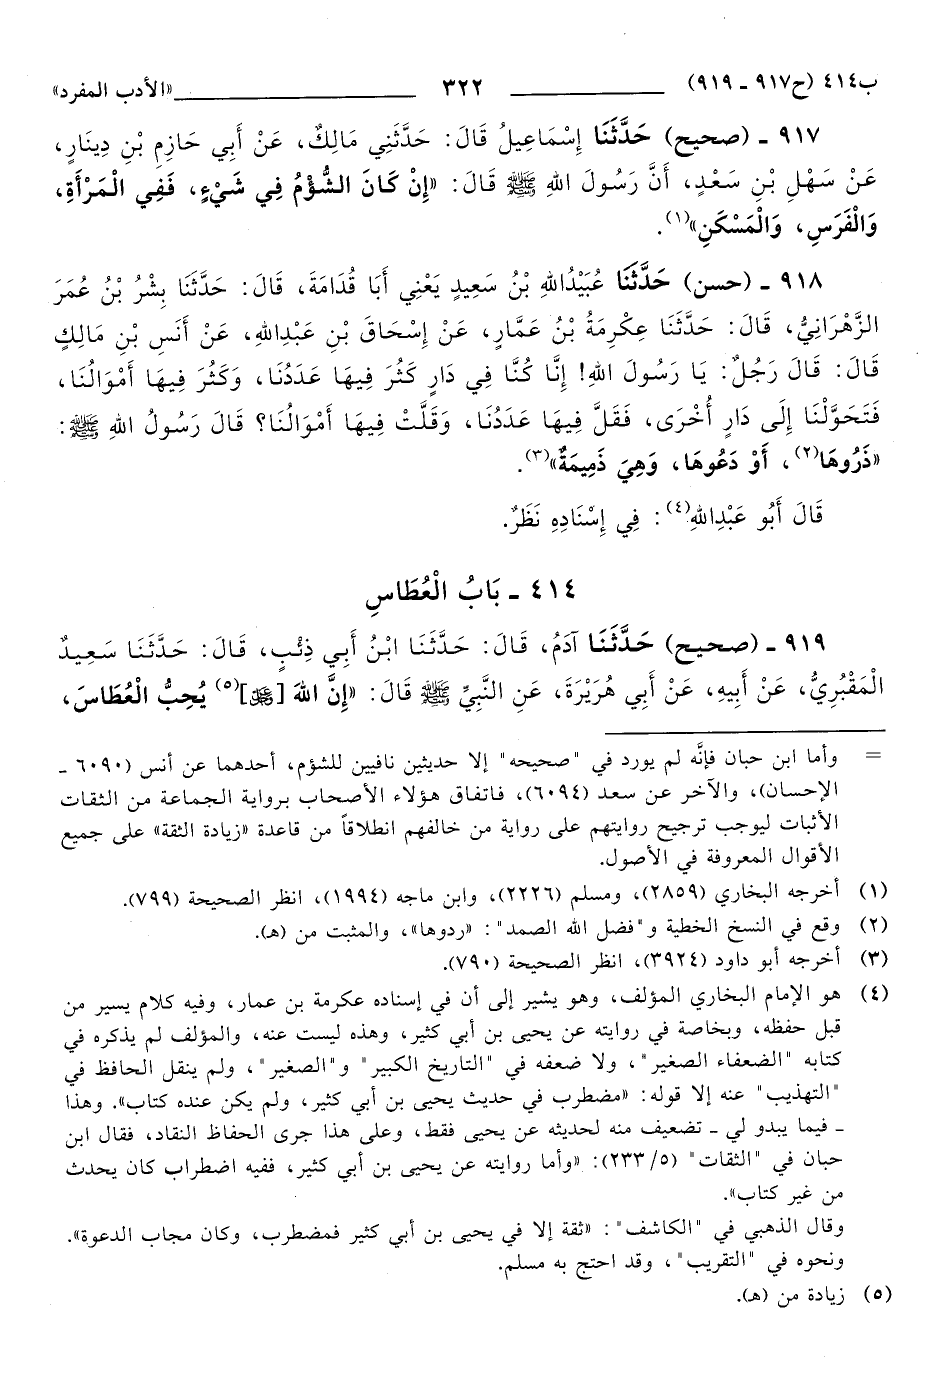 ب٤١٤ (ح٩١٧ ـ ٩١٩) ٣٢٢ «الأدب المفرد»
٩١٧ ـ (صحيح) حَدَّثَنَا إِسْمَاعِيلُ قَالَ: حَدَّثَنِي مَالِكٌ، عَنْ أَبِي حَازِمِ بْنِ دِينَارٍ،
عَنْ سَهْلِ بْنِ سَعْدٍ، أَنَّ رَسُولَ اللهِ ﷺ قَالَ: «إِنْ كَانَ الشُّؤْمُ فِي شَيْءٍ، فَفِي الْمَرْأَةِ،
وَالْفَرَسِ، وَالْمَسْكَنِ»(١).
٩١٨ ـ (حسن) حَدَّثَنَا عُبَيْدُاللهِ بْنُ سَعِيدٍ يَعْنِي أَبَا قُدَامَةَ، قَالَ: حَدَّثَنَا بِشْرُ بْنُ عُمَرَ
الزَّهْرَانِيُّ، قَالَ: حَدَّثَنَا عِكْرِمَةُ بْنُ عَمَّارٍ، عَنْ إِسْحَاقَ بْنِ عَبْدِاللهِ، عَنْ أَنَسِ بْنِ مَالِكٍ
قَالَ: قَالَ رَجُلٌ: يَا رَسُولَ اللهِ! إِنَّا كُنَّا فِي دَارٍ كَثُرَ فِيهَا عَدَدُنَا، وَكَثُرَ فِيهَا أَمْوَالُنَا،
فَتَحَوَّلْنَا إِلَى دَارٍ أُخْرَى، فَقَلَّ فِيهَا عَدَدُنَا، وَقَلَّتْ فِيهَا أَمْوَالُنَا؟ قَالَ رَسُولُ اللهِ ﷺ:
«ذَرُوهَا(٢)، أَوْ دَعُوهَا، وَهِيَ ذَمِيمَةٌ»(٣).
قَالَ أَبُو عَبْدِاللهِ(٤): فِي إِسْنَادِهِ نَظَرٌ.
٤١٤ ـ بَابُ الْعُطَاسِ
٩١٩ ـ (صحيح) حَدَّثَنَا آدَمُ، قَالَ: حَدَّثَنَا ابْنُ أَبِي ذِئْبٍ، قَالَ: حَدَّثَنَا سَعِيدٌ
الْمَقْبُرِيُّ، عَنْ أَبِيهِ، عَنْ أَبِي هُرَيْرَةَ، عَنِ النَّبِيِّ ﷺ قَالَ: «إِنَّ اللهَ [ﷻ](٥) يُحِبُّ الْعُطَاسَ،
= وأما ابن حبان فإنَّه لم يورد في "صحيحه" إلا حديثين نافيين للشؤم، أحدهما عن أنس (٦٠٩٠ ـ
الإحسان)، والآخر عن سعد (٦٠٩٤)، فاتفاق هؤلاء الأصحاب برواية الجماعة من الثقات
الأثبات ليوجب ترجيح روايتهم على رواية من خالفهم انطلاقاً من قاعدة «زيادة الثقة» على جميع
الأقوال المعروفة في الأصول.
(١) أخرجه البخاري (٢٨٥٩)، ومسلم (٢٢٢٦)، وابن ماجه (١٩٩٤)، انظر الصحيحة (٧٩٩).
(٢) وقع في النسخ الخطية و"فضل الله الصمد": «ردوها»، والمثبت من (هـ).
(٣) أخرجه أبو داود (٣٩٢٤)، انظر الصحيحة (٧٩٠).
(٤) هو الإمام البخاري المؤلف، وهو يشير إلى أن في إسناده عكرمة بن عمار، وفيه كلام يسير من
قبل حفظه، وبخاصة في روايته عن يحيى بن أبي كثير، وهذه ليست عنه، والمؤلف لم يذكره في
كتابه "الضعفاء الصغير"، ولا ضعفه في "التاريخ الكبير" و"الصغير"، ولم ينقل الحافظ في
"التهذيب" عنه إلا قوله: «مضطرب في حديث يحيى بن أبي كثير، ولم يكن عنده كتاب». وهذا
ـ فيما يبدو لي ـ تضعيف منه لحديثه عن يحيى فقط، وعلى هذا جرى الحفاظ النقاد، فقال ابن
حبان في "الثقات" (٥/ ٢٣٣): «وأما روايته عن يحيى بن أبي كثير، ففيه اضطراب كان يحدث
من غير كتاب».
وقال الذهبي في "الكاشف": «ثقة إلا في يحيى بن أبي كثير فمضطرب، وكان مجاب الدعوة».
ونحوه في "التقريب"، وقد احتج به مسلم.
(٥) زيادة من (هـ).